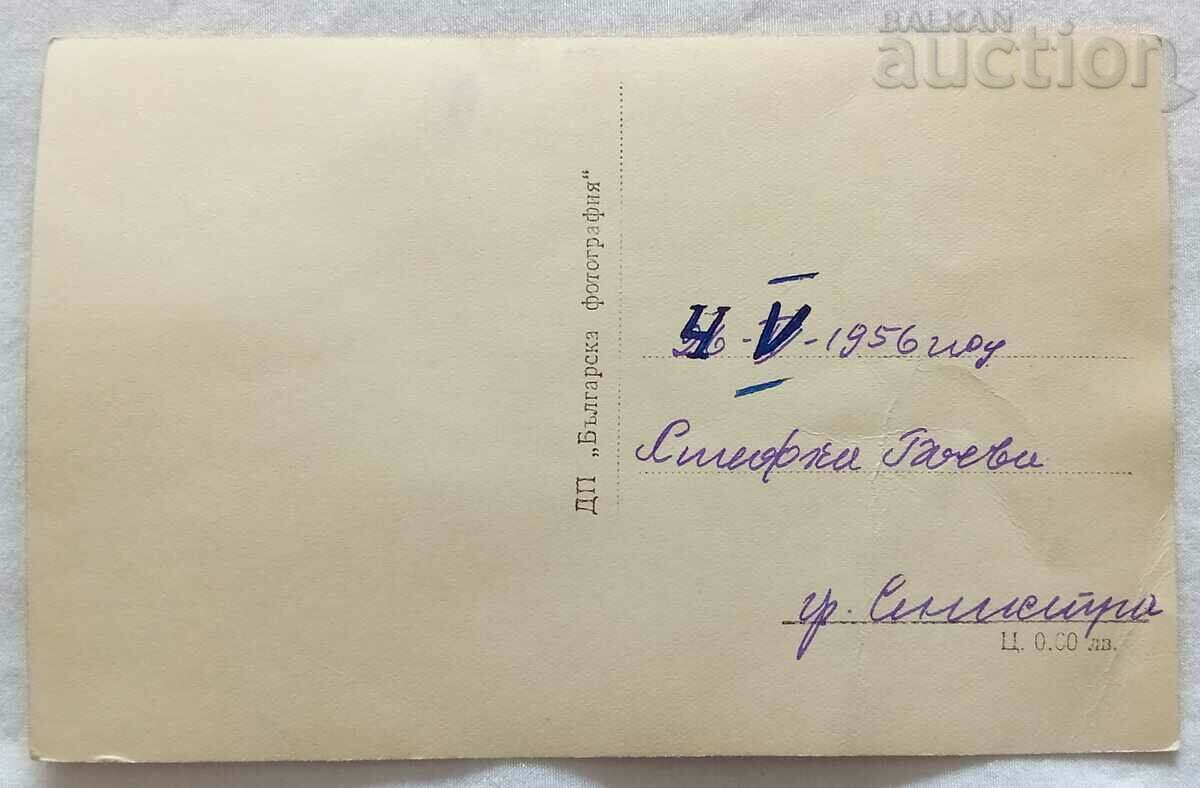 BALKAN
auction
ДП „Българска фотография“
4 V - 1956 год
Боева
гр. Силистра
Ц. 0.60 лв.